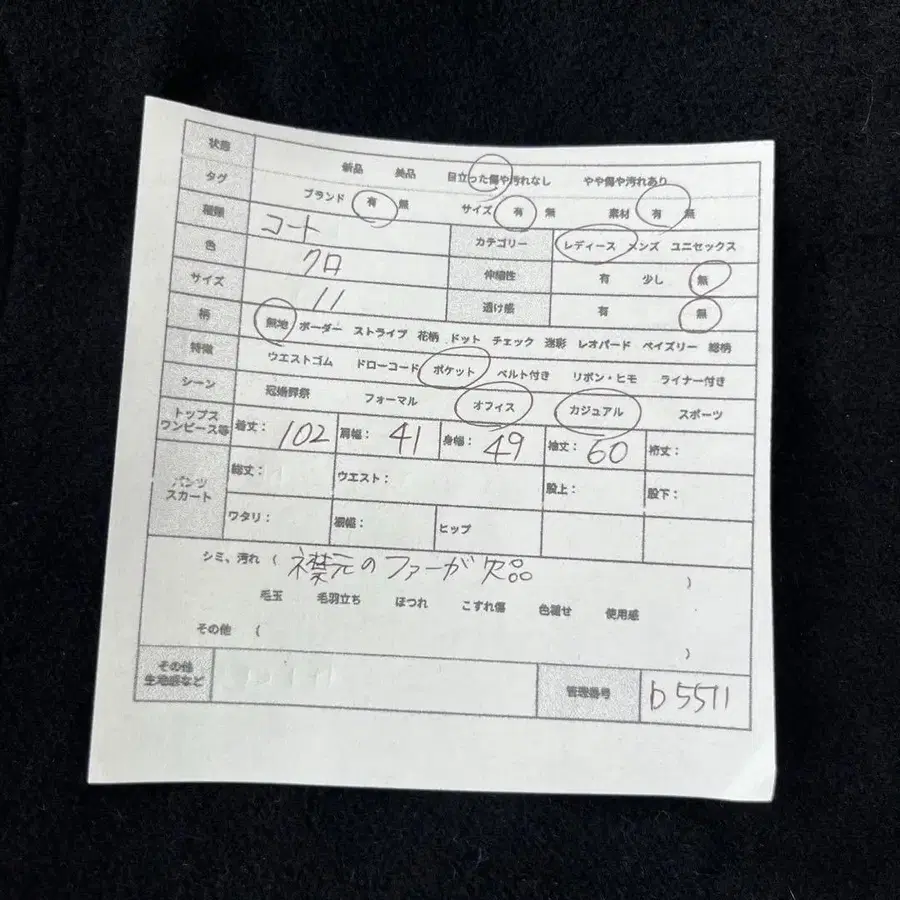 状態 新品 美品 目立った傷や汚れなし やや傷や汚れあり
タグ ブランド 有 無 サイズ 有 無 素材 有 無
種類 コート カテゴリー レディース メンズ ユニセックス
色 クロ 伸縮性 有 少し 無
サイズ 11 透け感 有 無
柄 無地 ボーダー ストライプ 花柄 ドット チェック 迷彩 レオパード ペイズリー 総柄
特徴 ウエストゴム ドローコード ポケット ベルト付き リボン・ヒモ ライナー付き
シーン 冠婚葬祭 フォーマル オフィス カジュアル スポーツ
トップス
ワンピース等 着丈: 102 肩幅: 41 身幅: 49 袖丈: 60 裄丈:
パンツ
スカート 総丈: ウエスト: 股上: 股下:
ワタリ: 裾幅: ヒップ
シミ、汚れ ( 襟元のファーが欠品 )
毛玉 毛羽立ち ほつれ こすれ傷 色褪せ 使用感
その他 ( )
その他
生地感など 管理番号 b5511